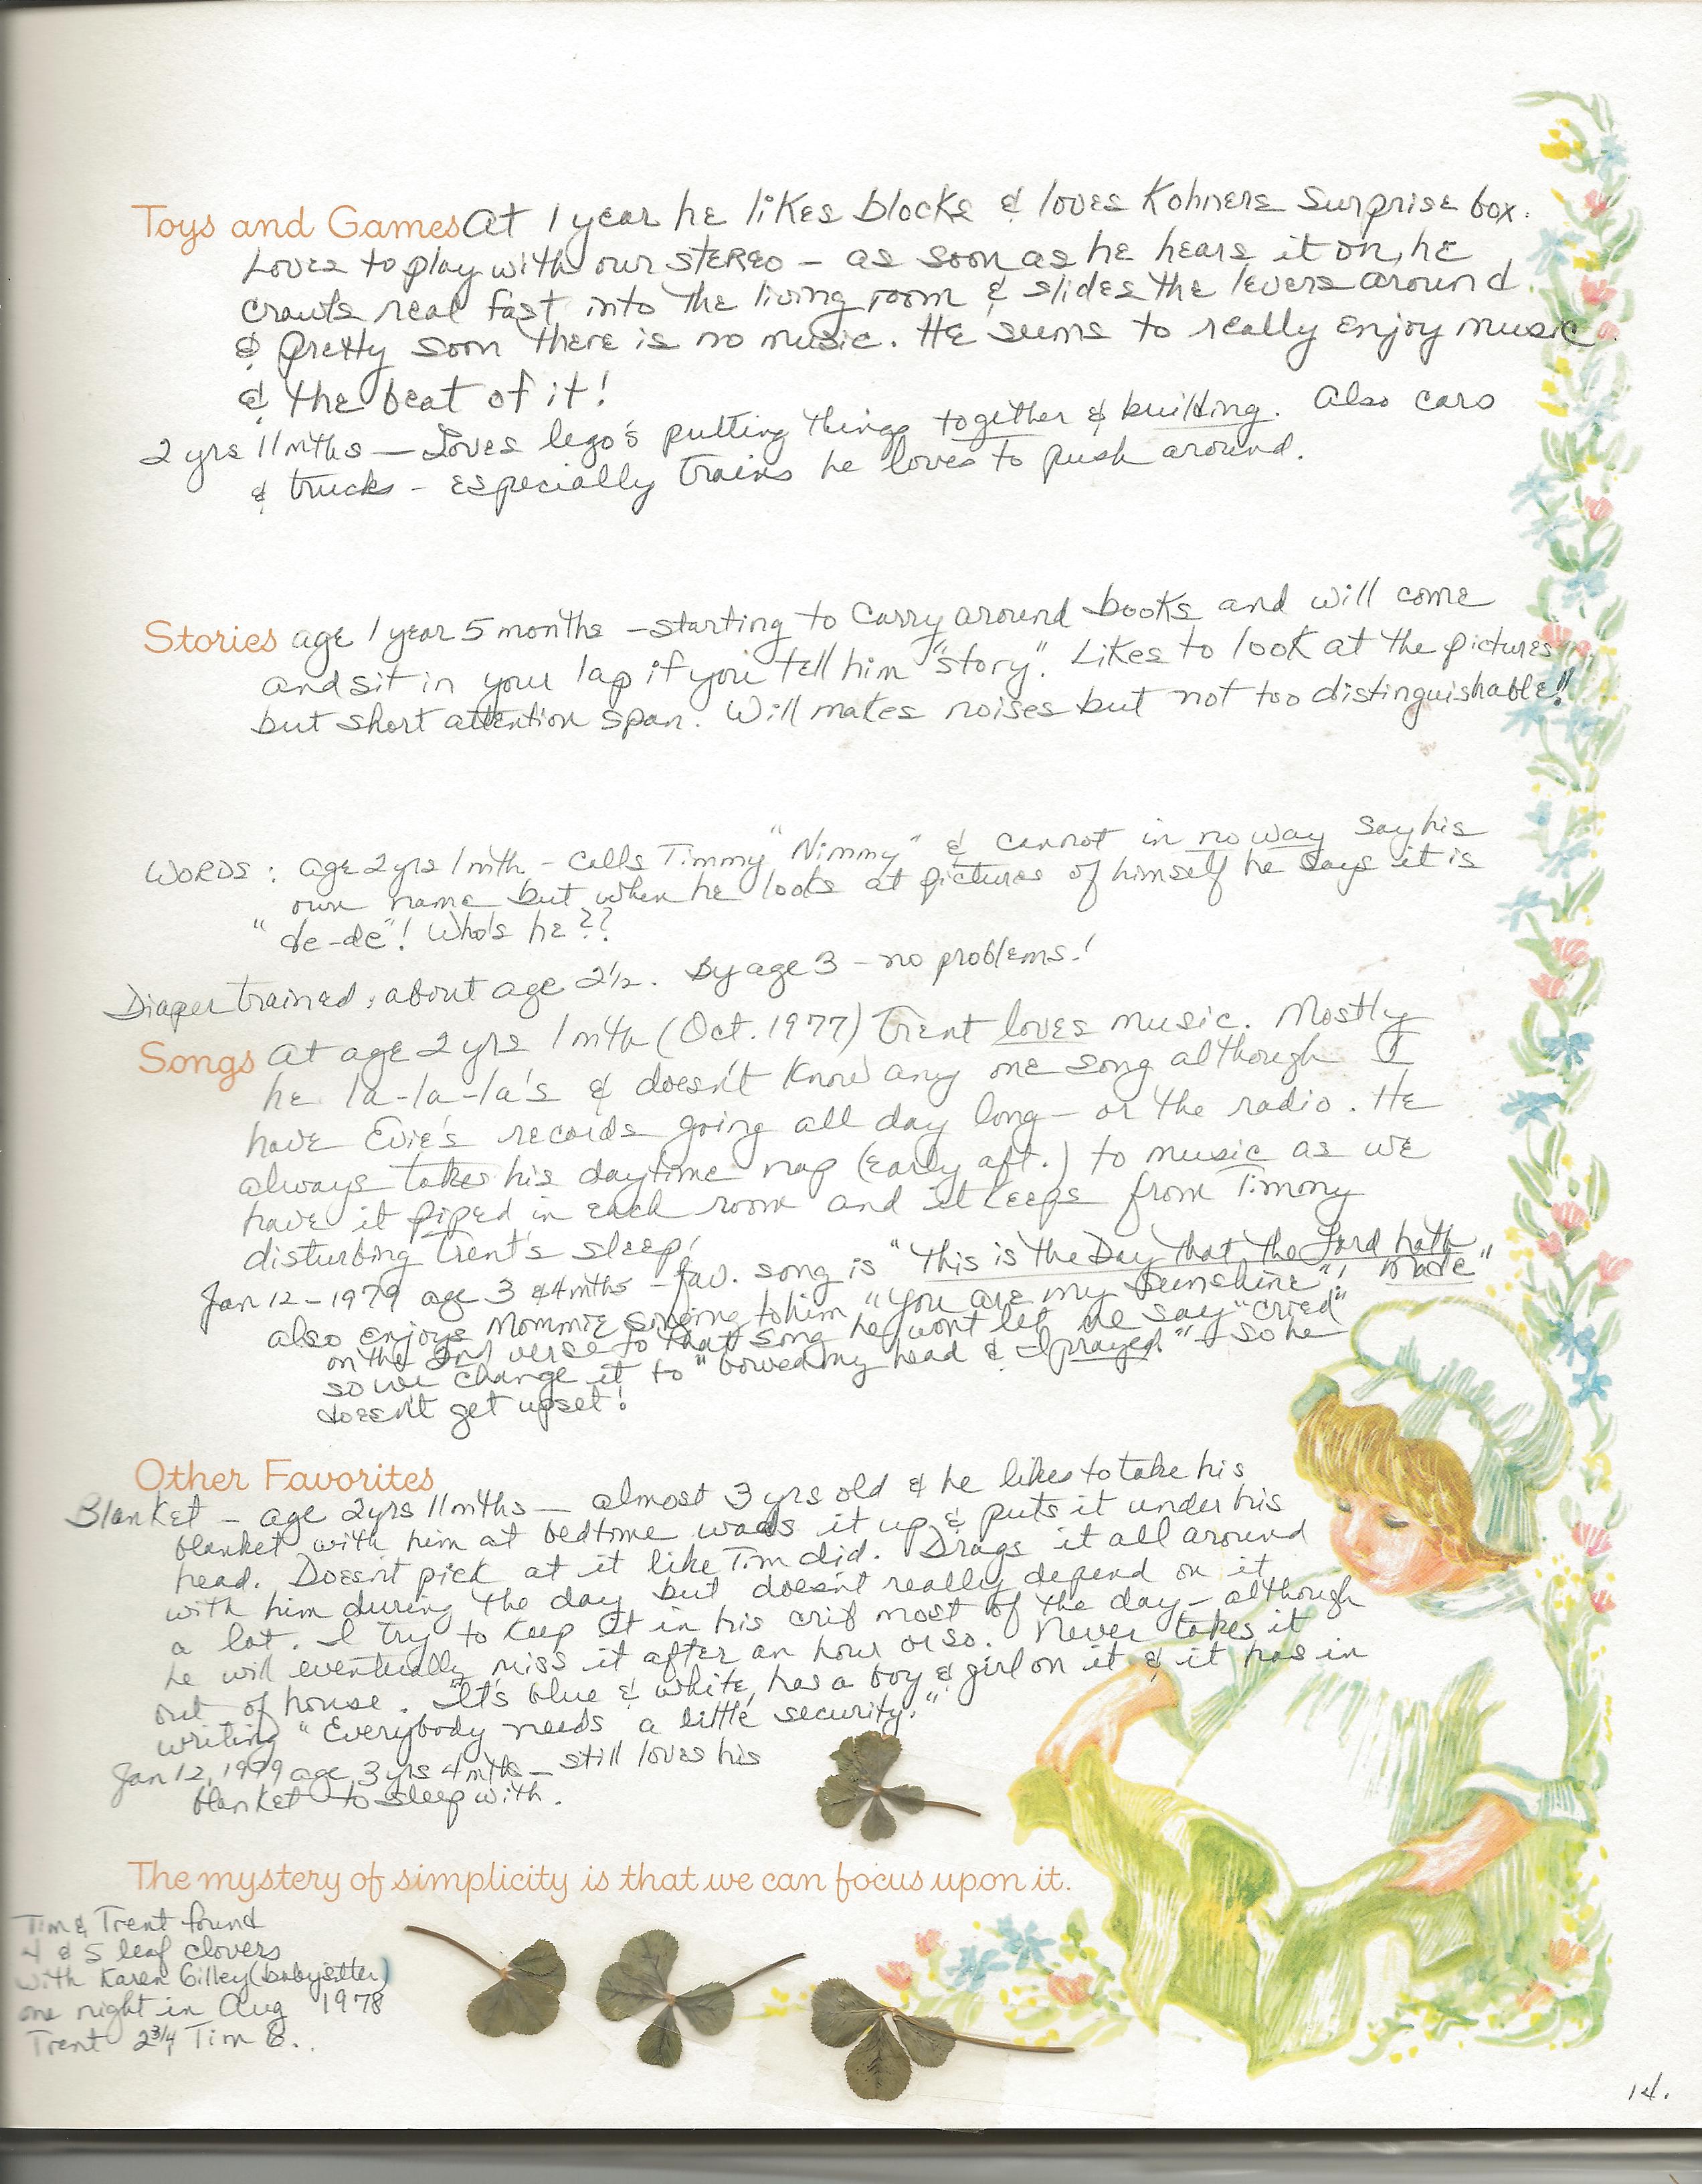 Toys and Games At 1 year he likes blocks & loves Kohners Surprise box.
Loves to play with our stereo - as soon as he hears it on, he
crawls real fast into the living room & slides the levers around
& pretty soon there is no music. He seems to really enjoy music
& the beat of it!
2 yrs 11 mths - Loves lego's putting things together & building. Also cars
& trucks - especially trains he loves to push around.
Stories age 1 year 5 months - starting to carry around books and will come
and sit in your lap if you tell him "story". Likes to look at the pictures
but short attention span. Will makes noises but not too distinguishable!!
WORDS: age 2 yrs 1 mth - calls Timmy "Nimmy" & cannot in no way say his
own name but when he looks at pictures of himself he says it is
"de-de"! Who's he??
Diaper trained: about age 2½. By age 3 - no problems!
Songs At age 2 yrs 1 mth (Oct. 1977) Trent loves music. Mostly
he la-la-la's & doesn't know any one song although I
have Evie's records going all day long - or the radio. He
always takes his daytime nap (early aft.) to music as we
have it piped in each room and it keeps from Timmy
disturbing Trent's sleep!
Jan 12 - 1979 age 3 & 4 mths - fav. song is "This is the Day that the Lord hath made"
also enjoys Mommie singing to him "You are my Sunshine";
on the 2nd verse to that song he won't let me say "cried"
so we change it to "bowed my head & I prayed." - so he
doesn't get upset!
Other Favorites
Blanket - age 2 yrs 11 mths - almost 3 yrs old & he likes to take his
blanket with him at bedtime wads it up & puts it under his
head. Doesn't pick at it like Tim did. Drags it all around
with him during the day but doesn't really depend on it
a lot. I try to keep it in his crib most of the day - although
he will eventually miss it after an hour or so. Never takes it
out of house. It's blue & white, has a boy & girl on it & it has in
writing "Everybody needs a little security."
Jan 12, 1979 age 3 yrs 4 mths - still loves his
blanket to sleep with.
The mystery of simplicity is that we can focus upon it.
Tim & Trent found
4 & 5 leaf clovers
with Karen Gilley (babysitter)
one night in Aug 1978
Trent 2¾ Tim 6..
14.